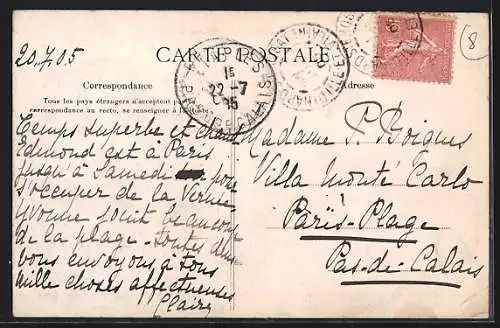 20.7.05
CARTE POSTALE
8
Correspondance
Adresse
Tous les pays étrangers n'acceptent pas
correspondance au recto, se renseigner à la poste.
15
22-7
05
PAS DE CALAIS
Temps superbe et chaud
Edmond est à Paris
jusqu'à Samedi pour
s'occuper de la
Yvonne jouit beaucoup
de la plage - toutes deux
vous envoyons à tous
mille choses affectueuses
Claire
Madame P. Boigues
Villa Monté Carlo
Paris-Plage
Pas-de-Calais